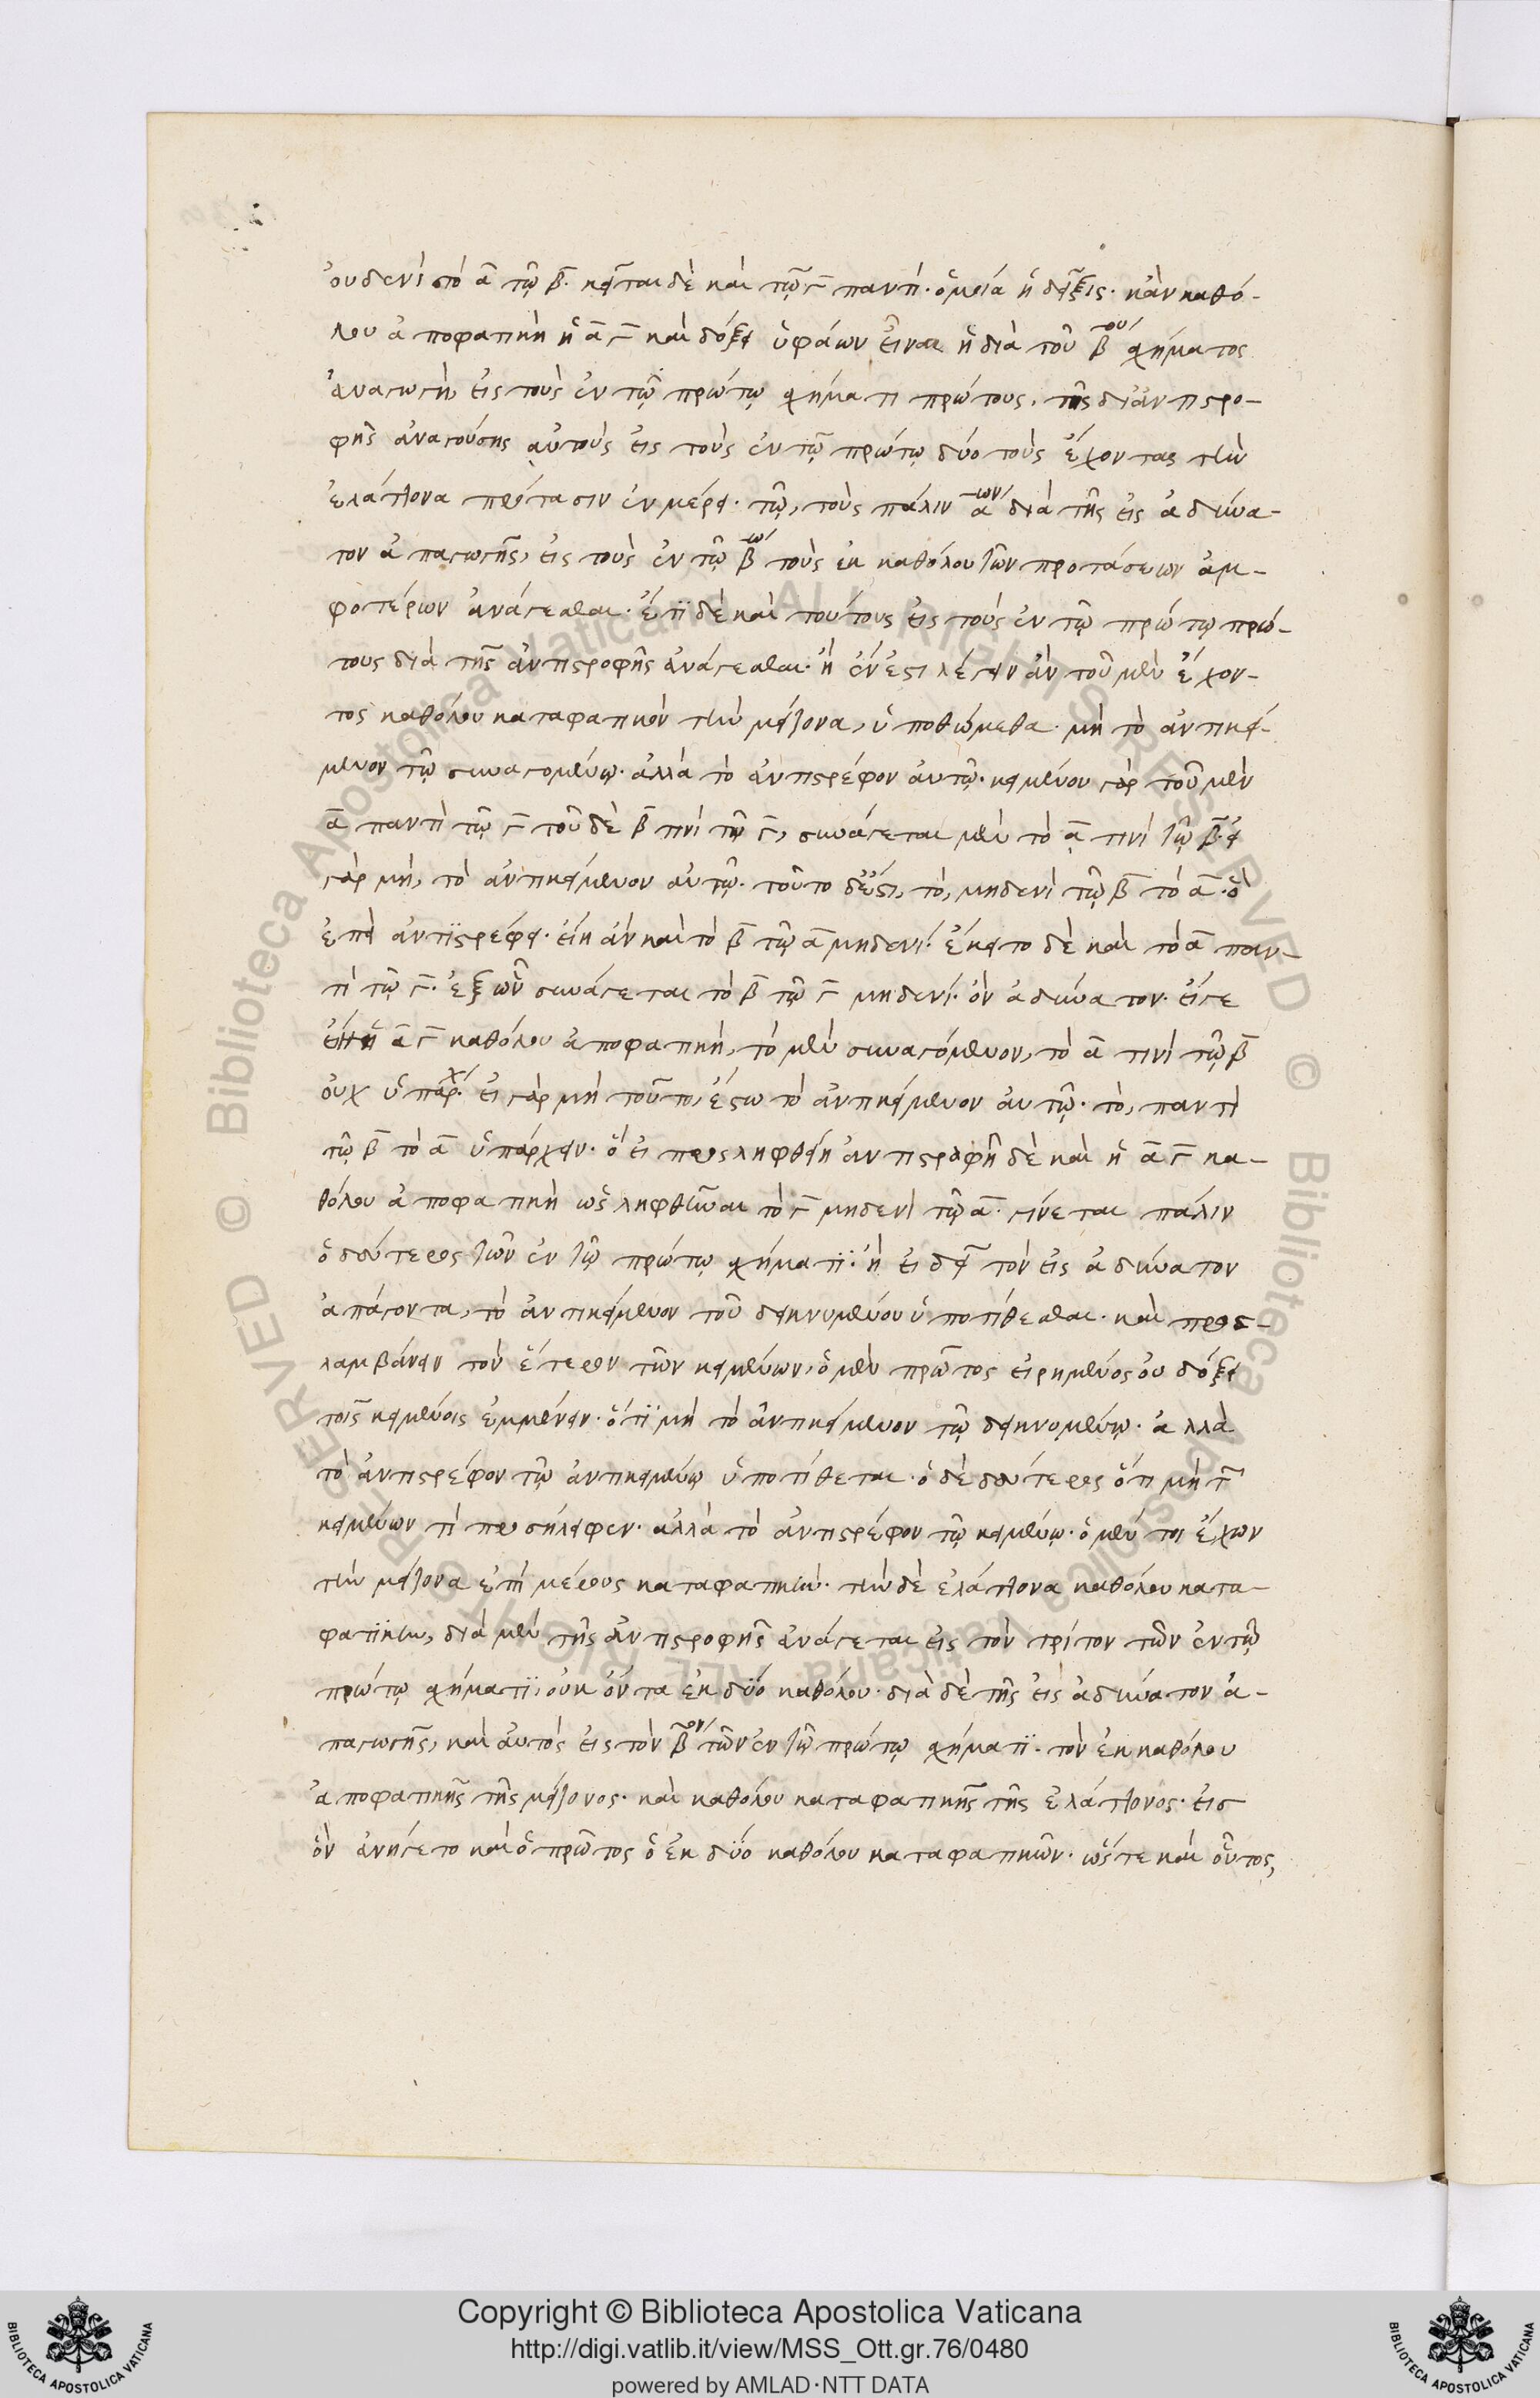 οὐδενὶ τὸ α τῷ β. κεῖται δὲ καὶ τῷ γ παντί. ὁμοία ἡ δεῖξις. κἂν καθό-
λου ἀποφατικὴ ἡ α γ καὶ δόξει ὑφάων εἶναι ἡ διὰ τοῦ βου σχήματος
ἀναγωγὴ, εἰς τοὺς ἐν τῷ πρώτῳ σχήματι πρώτους, τῆς δι' ἀντιστρο-
φῆς ἀναγούσης αὐτοὺς εἰς τοὺς ἐν τῷ πρώτῳ δύο τοὺς ἔχοντας τὴν
ἐλάττονα πρότασιν ἐν μέρει. τῷ, τοὺς πάλιν αων διὰ τῆς εἰς ἀδύνα-
τον ἀπαγωγῆς, εἰς τοὺς ἐν τῷ βω τοὺς ἐκ καθόλου τῶν προτάσεων ἀμ-
φοτέρων ἀνάγεσθαι. ἔτι δὲ καὶ τούτους εἰς τοὺς ἐν τῷ πρώτῳ πρώ-
τους διὰ τῆς ἀντιστροφῆς ἀνάγεσθαι. ἢ ἔνεστι λέγειν ἂν τοῦ μὲν ἔχον-
τος καθόλου καταφατικὸν τὴν μείζονα, ὑποθώμεθα μὴ τὸ ἀντικεί-
μενον τῷ συναγομένῳ. ἀλλὰ τὸ ἀντιστρέφον αὐτῷ. κειμένου γὰρ τοῦ μὲν
α παντὶ τῷ γ τοῦ δὲ β τινὶ τῷ γ, συνάγεται μὲν τὸ α τινὶ τῷ β. εἰ
γὰρ μὴ, τὸ ἀντικείμενον αὐτῷ. τοῦτο δέ ἐστι, τὸ, μηδενὶ τῷ β τὸ α. ὃ
ἐπεὶ ἀντιστρέφει. εἴη ἂν καὶ τὸ β τῷ α μηδενί. ἔκειτο δὲ καὶ τὸ α παν-
τὶ τῷ γ. ἐξ ὧν συνάγεται τὸ β τῷ γ μηδενί. ὂν ἀδύνατον. εἴγε
ἡ α γ καθόλου ἀποφατικὴ, τὸ μὲν συναγόμενον, τὸ α τινὶ τῷ β
οὐχ ὑπάρχ. εἰ γὰρ μὴ τοῦτο, ἔστω τὸ ἀντικείμενον αὐτῷ. τὸ, παντὶ
τῷ β τὸ α ὑπάρχειν. ὃ εἰ προσληφθείη ἀντιστραφῆ δὲ καὶ ἡ α γ κα-
θόλου ἀποφατικὴ ὡς ληφθῆναι τὸ γ μηδενὶ τῷ α. γίνεται πάλιν
ὁ δεύτερος τῶν ἐν τῷ πρώτῳ σχήματι. ἢ εἰ δεῖ τὸν εἰς ἀδύνατον
ἀπάγοντα, τὸ ἀντικείμενον τοῦ δεικνυμένου ὑποτίθεσθαι. καὶ προσ-
λαμβάνειν τὸν ἕτερον τῶν κειμένων, ὁ μὲν πρῶτος εἰρημένος οὐ δόξει
τοῖς κειμένοις ἐμμένειν. ὅτι μὴ τὸ ἀντικείμενον τῷ δεικνομένῳ. ἀλλὰ
τὸ ἀντιστρέφον τῷ ἀντικειμένῳ ὑποτίθεται. ὁ δὲ δεύτερος ὅτι μὴ τ
κειμένων τὶ προσήληφεν. ἀλλὰ τὸ ἀντιστρέφον τῷ κειμένῳ. ὁ μέν τοι ἔχων
τὴν μείζονα ἐπὶ μέρους καταφατικὴν. τὴν δὲ ἐλάττονα καθόλου κατα-
φατικὴν, διὰ μὲν τῆς ἀντιστροφῆς ἀνάγεται εἰς τὸν τρίτον τῶν ἐν τῷ
πρώτῳ σχήματι, οὐκ ὄντα ἐκ δύο καθόλου. διὰ δὲ τῆς εἰς ἀδύνατον ἀ-
παγωγῆς, καὶ αὐτὸς εἰς τὸν βον τῶν ἐν τῷ πρώτῳ σχήματι. τὸν ἐκ καθόλου
ἀποφατικῆς τῆς μείζονος. καὶ καθόλου καταφατικῆς τῆς ἐλάττονος. εἰς
ὃν ἀνήγετο καὶ ὁ πρῶτος ὁ ἐκ δύο καθόλου καταφατικῶν. ὥστε καὶ οὗτος,
Copyright © Biblioteca Apostolica Vaticana
http://digi.vatlib.it/view/MSS_Ott.gr.76/0480
powered by AMLAD·NTT DATA